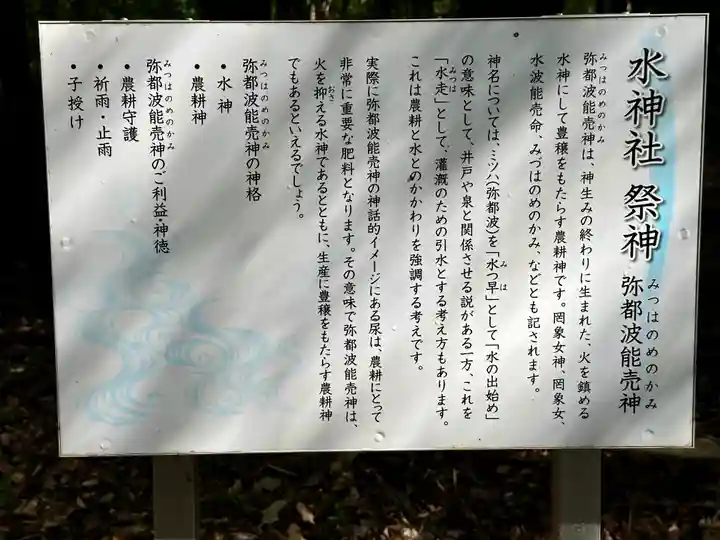 水神社 祭神 弥都波能売神
みつはのめのかみ
みつはのめのかみ
弥都波能売神は、神生みの終わりに生まれた、火を鎮める
水神にして豊穣をもたらす農耕神です。罔象女神、罔象女、
水波能売命、みづはのめのかみ、などとも記されます。
神名については、ミツハ(弥都波)を「水つ早」として「水の出始め」
みつは
の意味として、井戸や泉と関係させる説がある一方、これを
「水走」として、灌漑のための引水とする考え方もあります。
みつは
これは農耕と水とのかかわりを強調する考えです。
実際に弥都波能売神の神話的イメージにある尿は、農耕にとって
非常に重要な肥料となります。その意味で弥都波能売神は、
火を抑える水神であるとともに、生産に豊穣をもたらす農耕神
おさ
でもあるといえるでしょう。
みつはのめのかみ
弥都波能売神の神格
・水神
・農耕神
みつはのめのかみ
弥都波能売神のご利益・神徳
・農耕守護
・祈雨・止雨
・子授け